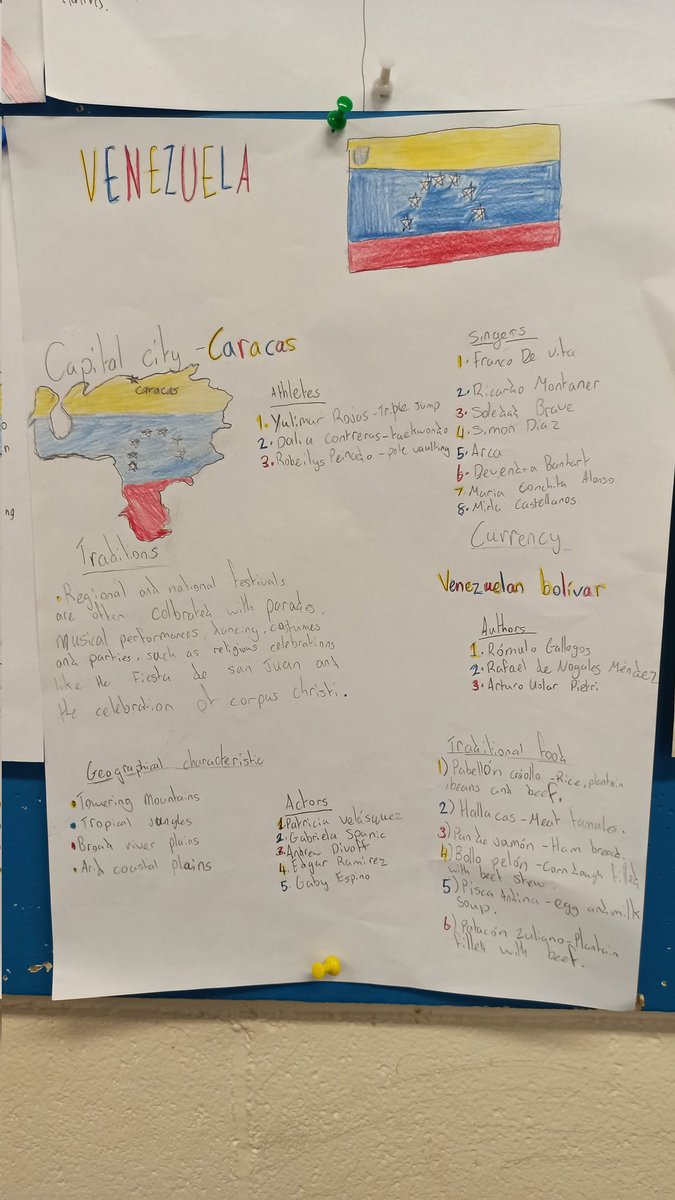 VENEZUELA
Capital city - Caracas
Caracas
Athletes
1. Yulimar Rojas - Triple Jump
2. Dalia Contreras - taekwondo
3. Robeilys Peinado - pole vaulting
Singers
1. Franco De vita
2. Ricardo Montaner
3. Soledad Bravo
4. Simon Diaz
5. Arca
6. Devendra Banhart
7. Maria Conchita Alonso
8. Mirla Castellanos
Currency
Venezuelan bolívar
Authors
1. Rómulo Gallegos
2. Rafael de Nogales Méndez
3. Arturo Uslar Pietri
Traditions
• Regional and national festivals
are often celbrated with parades,
musical performances, dancing, costumes
and parties, such as religious celebrations
like the Fiesta de san Juan and
the celebration of corpus christi.
Geographical characteristic
• Towering Mountains
• Tropical Jungles
• Broad river plains
• Arid coastal plains
Actors
1. Patricia Velásquez
2. Gabriela Spanic
3. Andrew Divoff
4. Edgar Ramirez
5. Gaby Espino
Traditional food
1) Pabellón criollo - Rice, plantain
, beans and beef.
2) Hallacas - Meat tamales.
3) Pan de Jamón - Ham bread.
4) Bollo pelón - Corn dough filled
with beef stew.
5) Pisca Andina - egg and milk
soup.
6) Patacón Zuliano - Plantain
filled with beef.